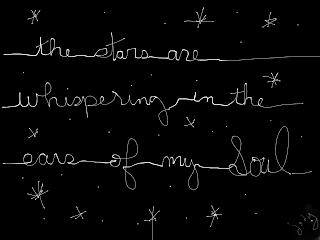 the stars are
whispering in the
ears of my Soul